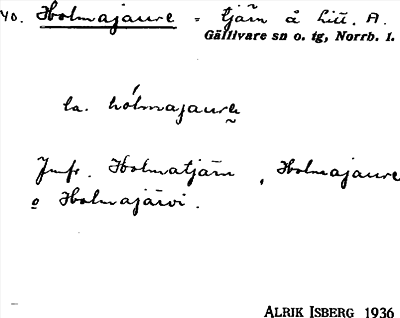 40. Holmajaure = tjärn å Litt. A.
Gällivare sn o. tg, Norrb. l.
la. hólmajaurḛ
Jmfr. Holmatjärn, Holmajaure
o Holmajärvi.
ALRIK ISBERG 1936